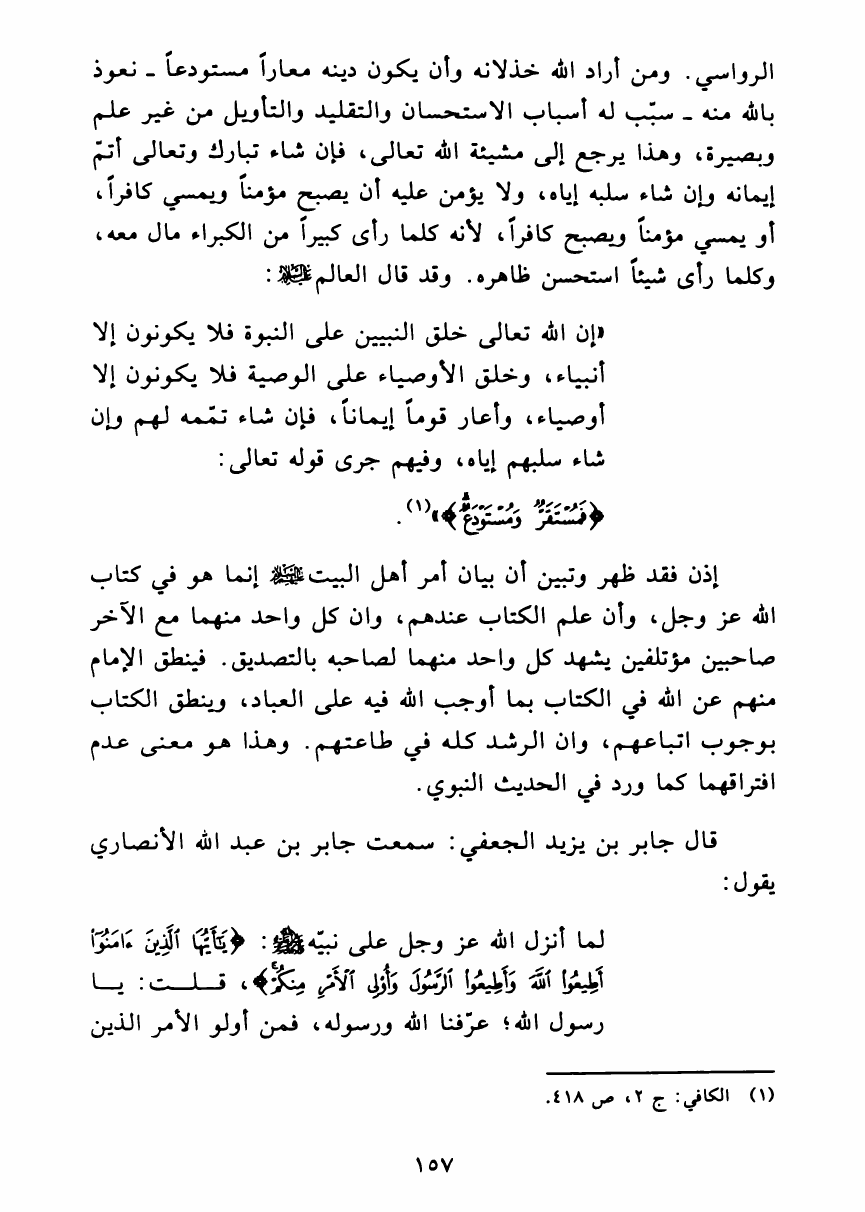 الرواسي. ومن أراد الله خذلانه وأن يكون دينه معاراً مستودعاً - نعوذ
بالله منه - سبّب له أسباب الاستحسان والتقليد والتأويل من غير علم
وبصيرة، وهذا يرجع إلى مشيئة الله تعالى، فإن شاء تبارك وتعالى أتمّ
إيمانه وإن شاء سلبه إياه، ولا يؤمن عليه أن يصبح مؤمناً ويمسي كافراً،
أو يمسي مؤمناً ويصبح كافراً، لأنه كلما رأى كبيراً من الكبراء مال معه،
وكلما رأى شيئاً استحسن ظاهره. وقد قال العالم عليه السلام:
«إن الله تعالى خلق النبيين على النبوة فلا يكونون إلا
أنبياء، وخلق الأوصياء على الوصية فلا يكونون إلا
أوصياء، وأعار قوماً إيماناً، فإن شاء تمّمه لهم وإن
شاء سلبهم إياه، وفيهم جرى قوله تعالى:
﴿فَمُسْتَقَرٌّ وَمُسْتَوْدَعٌ﴾»(١).
إذن فقد ظهر وتبين أن بيان أمر أهل البيت عليهم السلام إنما هو في كتاب
الله عز وجل، وأن علم الكتاب عندهم، وان كل واحد منهما مع الآخر
صاحبين مؤتلفين يشهد كل واحد منهما لصاحبه بالتصديق. فينطق الإمام
منهم عن الله في الكتاب بما أوجب الله فيه على العباد، وينطق الكتاب
بوجوب اتباعهم، وان الرشد كله في طاعتهم. وهذا هو معنى عدم
افتراقهما كما ورد في الحديث النبوي.
قال جابر بن يزيد الجعفي: سمعت جابر بن عبد الله الأنصاري
يقول:
لما أنزل الله عز وجل على نبيّه ﷺ: ﴿يَٰٓأَيُّهَا ٱلَّذِينَ ءَامَنُوٓا۟
أَطِيعُوا۟ ٱللَّهَ وَأَطِيعُوا۟ ٱلرَّسُولَ وَأُو۟لِى ٱلْأَمْرِ مِنكُمْ﴾، قلت: يا
رسول الله؛ عرّفنا الله ورسوله، فمن أولو الأمر الذين
(١) الكافي: ج ٢، ص ٤١٨.
١٥٧